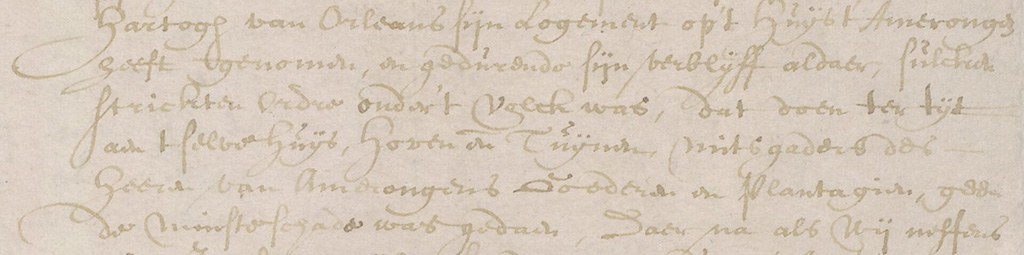 Hartogh van Orleans sijn Logement op't Huijs t Amerongen
heeft genomen, en gedurende sijn verblijff aldaer, sulcken
strickten ordre onder't Volck was, dat doen ter tijt
aen t selve Huijs, Hoven en Tuijnen, mitsgaders des
Heeren van Amerongens Goederen en Plantagien, geen
de minste schade was gedaen, Daer na als Wij neffens